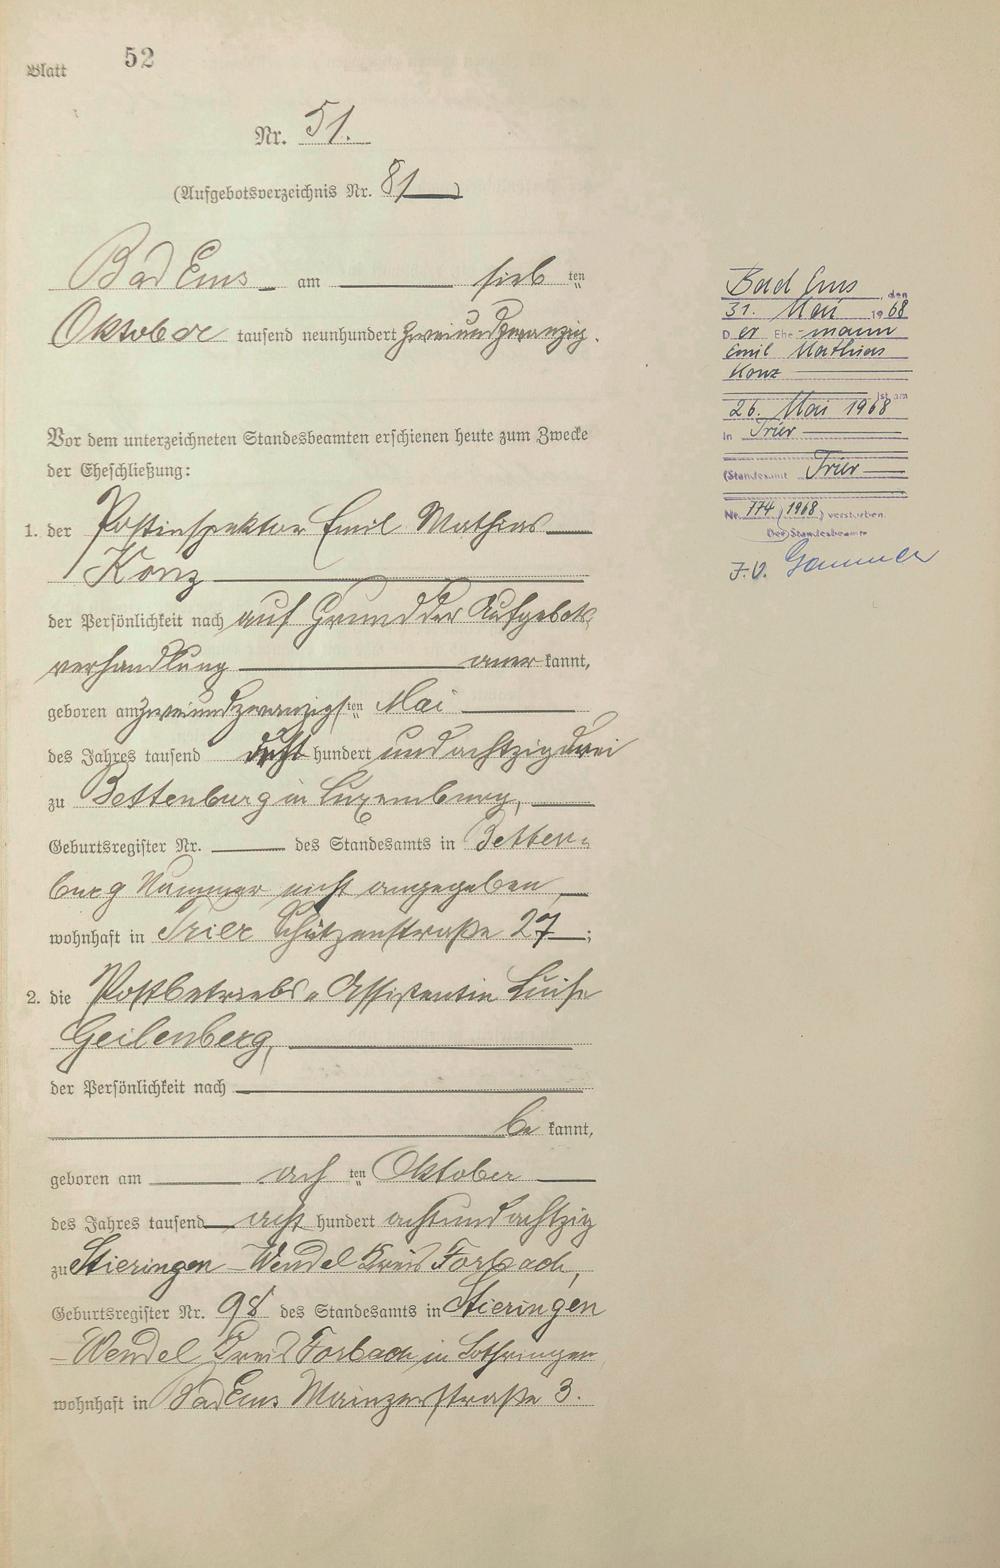 Blatt 52
Nr. 51.
(Aufgebotsverzeichnis Nr. 81)
Bad Ems am sieb ten
Oktober tausend neunhundert zweiundzwanzig.
Vor dem unterzeichneten Standesbeamten erschienen heute zum Zwecke
der Eheschließung:
1. der Postinspektor Emil Mathias
Konz
der Persönlichkeit nach auf Grund der Aufgebots
verhandlung aner kannt,
geboren am zweiundzwanzigsten Mai
des Jahres tausend acht hundert undachtzigdrei
zu Bettenburg in Luxemburg,
Geburtsregister Nr. des Standesamts in Betten=
burg Nummer nicht angegeben
wohnhaft in Trier Schützenstraße 27;
2. die Postbetriebs=Assistentin Luise
Geilenberg,
der Persönlichkeit nach
be kannt,
geboren am ach ten Oktober
des Jahres tausend acht hundert achtundachtzig
zu Stieringen-Wendel Kreis Forbach,
Geburtsregister Nr. 98 des Standesamts in Stieringen
-Wendel Kreis Forbach in Lothringen
wohnhaft in Bad Ems Mainzerstraße 3.
Bad Ems, den
31. Mai 1968
Der Ehe-mann
Emil Mathias
Konz
ist am
26. Mai 1968
in Trier
(Standesamt Trier
Nr. 774/1968) verstorben.
Der Standesbeamte
J.V.